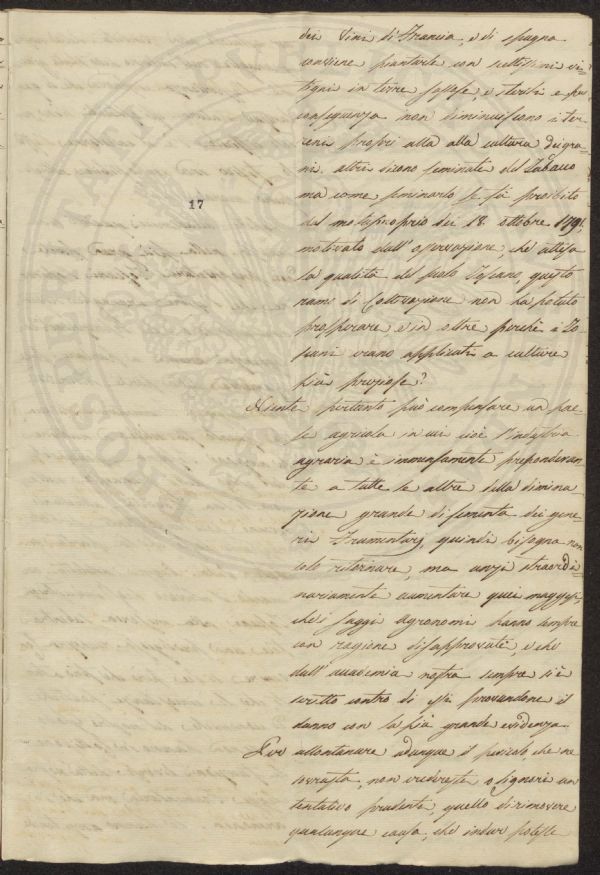 dei Vini di Francia, e di Spagna
conviene piantarle con sceltissimi vi-
tigni in terre sassose, e sterili e per
conseguenza non diminuiscono i ter-
reni propri alla alla cultura dei gra-
ni. altri dicono seminate del Tabacco
17
ma come seminarlo se fù proibito
dal motuproprio dei 18. ottobre 1791.
motivato dall'osservazione, che attesa
la qualità del suolo Toscano, questo
ramo di Coltivazione non ha potuto
prosperare ed in oltre perché i To
scani erano applicati a culture
più preziose?
Niente pertanto può compensare un pae-
se agricola in cui cioè l'industria
agraria è immensamente preponderan-
te a tutte le altre della diminu-
zione grande di sementa dei gene-
ri Frumentarj, quindi bisogna non
solo ritornare, ma anzi straordi-
nariamente aumentare quei maggesi,
che i saggi Agronomi hanno sempre
con ragione disapprovati, e che
dall'accademia nostra sempre si è
scritto contro di essi provandone il
danno con la più grande evidenza.
Per allontanare adunque il pericolo, che ne
sovrasta, non credereste o Signori un
tentativo prudente, quello di rimovere
qualunque causa, che indur potesse